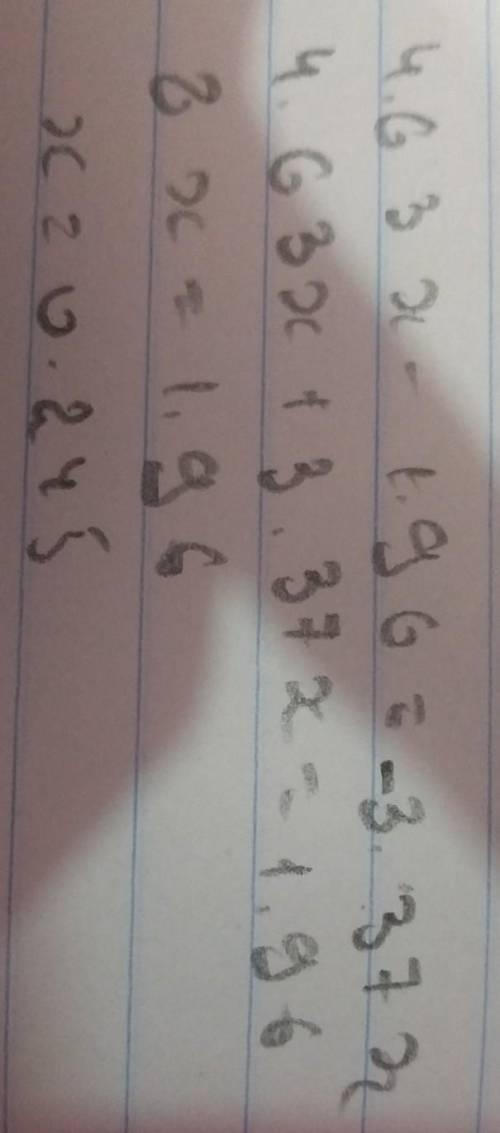 4.63x - 1.96 = -3.37x
4.63x + 3.37x = 1.96
8x = 1.96
x = 0.245